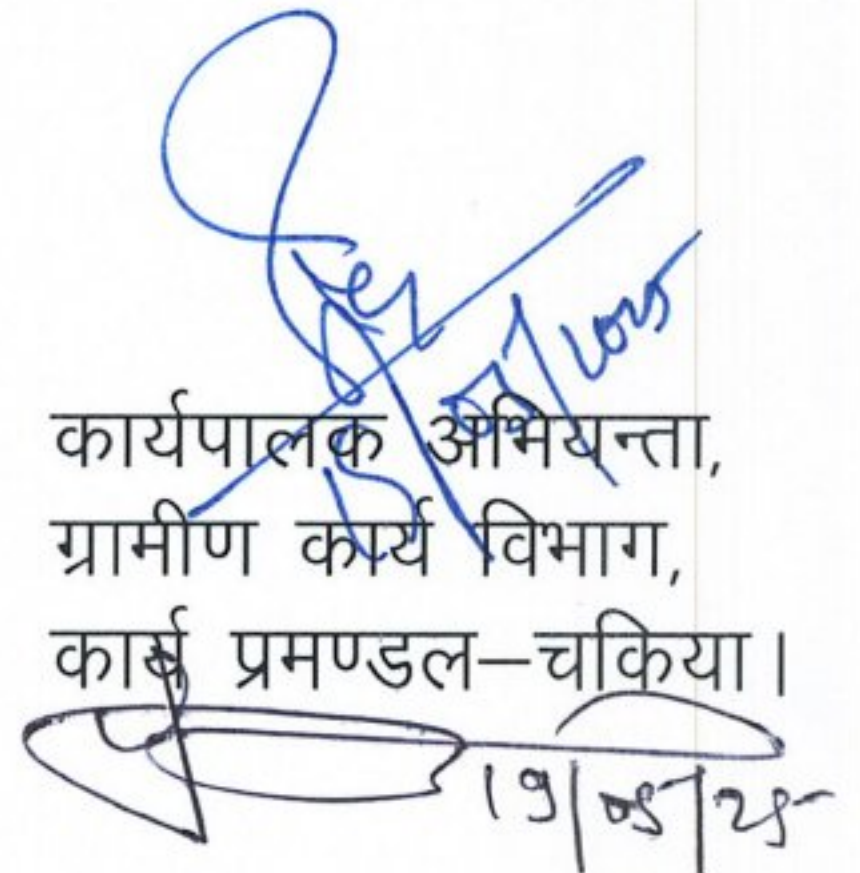 कार्यपालक अभियन्ता,
ग्रामीण कार्य विभाग,
कार्य प्रमण्डल–चकिया।
19/05/25